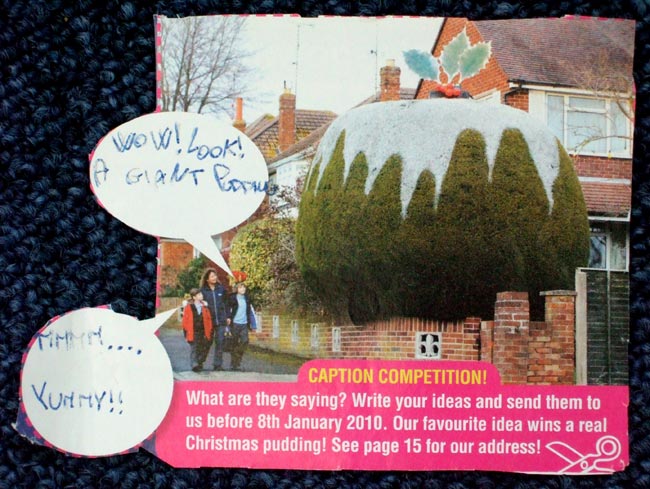 WOW! LOOK!
A GIANT PUDDING
MMMM....
YUMMY!!
CAPTION COMPETITION!
What are they saying? Write your ideas and send them to
us before 8th January 2010. Our favourite idea wins a real
Christmas pudding! See page 15 for our address!